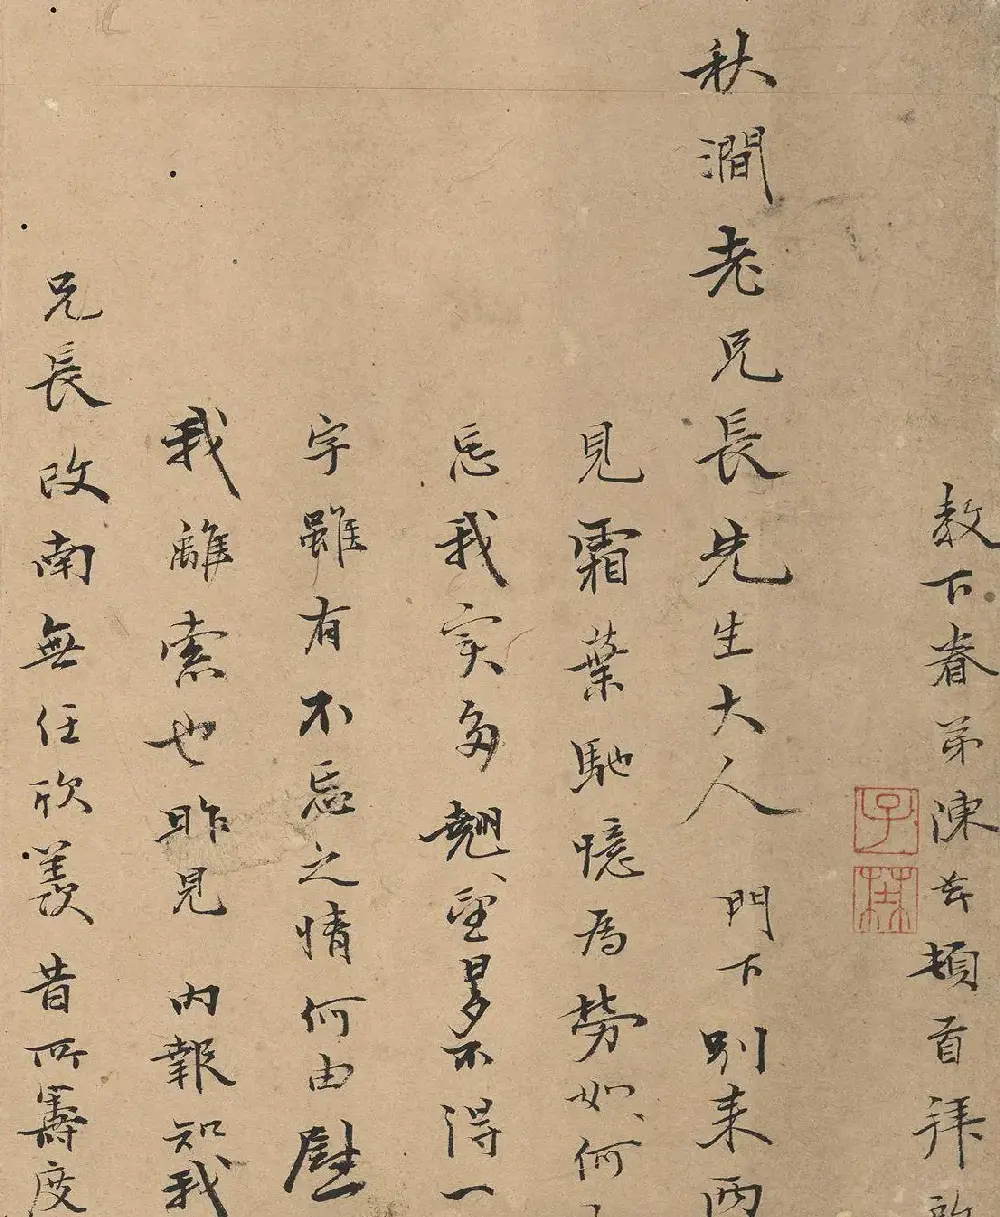 教下眷弟陳芹頓首拜啟
秋澗老兄長先生大人門下別来兩
見霜葉馳憶為勞如何
忘我实多翹望累不得一
字雖有不忘之情何由慰
我離索也昨見內報知我
兄長改南無任欣羨昔所籌度
子